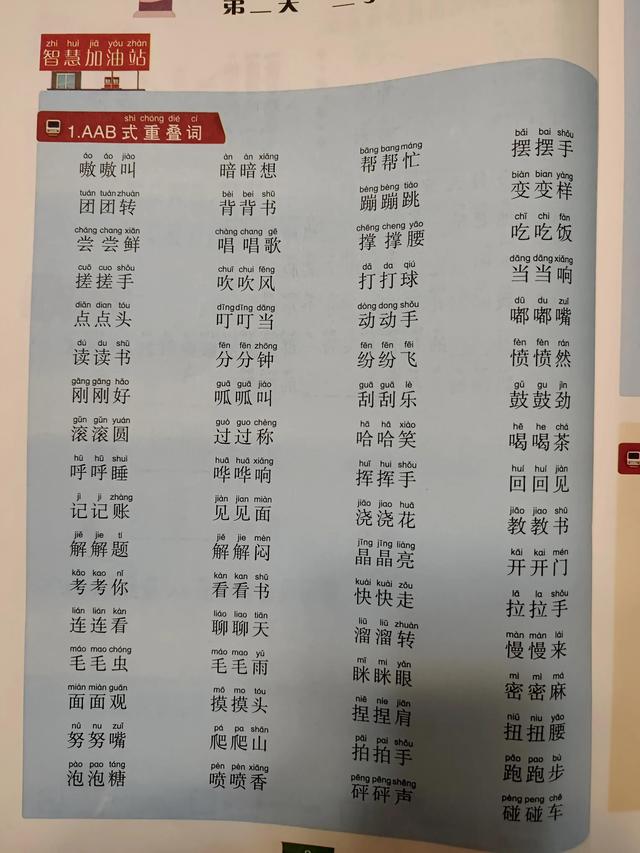 zhì huì jiā yóu zhàn
智慧加油站
shì chóng dié cí
1.AAB式重叠词
áo áo jiào àn àn xiǎng bāng bang máng bǎi bai shǒu
嗷嗷叫 暗暗想 帮帮忙 摆摆手
tuán tuán zhuàn bèi bei shū bèng bèng tiào biàn bian yàng
团团转 背背书 蹦蹦跳 变变样
cháng chang xiān chàng chang gē chēng cheng yāo chī chi fàn
尝尝鲜 唱唱歌 撑撑腰 吃吃饭
cuō cuo shǒu chuī chui fēng dǎ da qiú dāng dāng xiǎng
搓搓手 吹吹风 打打球 当当响
diǎn dian tóu dīng dīng dāng dòng dong shǒu dū du zuǐ
点点头 叮叮当 动动手 嘟嘟嘴
dú du shū fēn fēn zhōng fēn fēn fēi fèn fèn rán
读读书 分分钟 纷纷飞 愤愤然
gāng gāng hǎo guā guā jiào guā guā lè gǔ gu jìn
刚刚好 呱呱叫 刮刮乐 鼓鼓劲
gǔn gǔn yuán guò guo chèng hā hā xiào hē he chá
滚滚圆 过过称 哈哈笑 喝喝茶
hū hū shuì huā huā xiǎng huī hui shǒu huí huí jiàn
呼呼睡 哗哗响 挥挥手 回回见
jì ji zhàng jiàn jian miàn jiāo jiao huā jiāo jiao shū
记记账 见见面 浇浇花 教教书
jiě jie tí jiě jie mèn jīng jīng liàng kāi kai mén
解解题 解解闷 晶晶亮 开开门
kǎo kao nǐ kàn kan shū kuài kuài zǒu lā la shǒu
考考你 看看书 快快走 拉拉手
lián lián kàn liáo liao tiān liū liū zhuàn màn màn lái
连连看 聊聊天 溜溜转 慢慢来
máo mao chóng máo mao yǔ mī mi yǎn mì mì má
毛毛虫 毛毛雨 眯眯眼 密密麻
miàn miàn guān mō mo tóu niē nie jiān niǔ niu yāo
面面观 摸摸头 捏捏肩 扭扭腰
nǔ nu zuǐ pá pa shān pāi pai shǒu pǎo pao bù
努努嘴 爬爬山 拍拍手 跑跑步
pào pao táng pèn pèn xiāng pēng pēng shēng pèng peng chē
泡泡糖 喷喷香 砰砰声 碰碰车